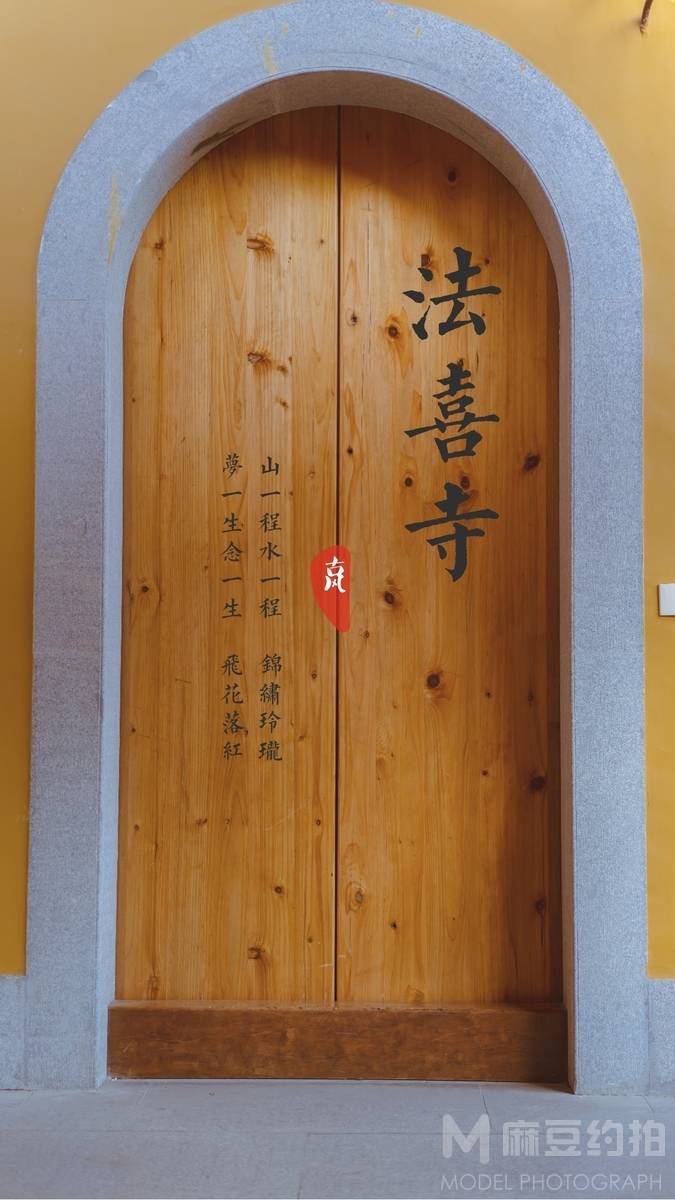 法喜寺
山一程水一程 錦繡玲瓏
夢一生念一生 飛花落紅
古风
M 麻豆约拍
MODEL PHOTOGRAPH